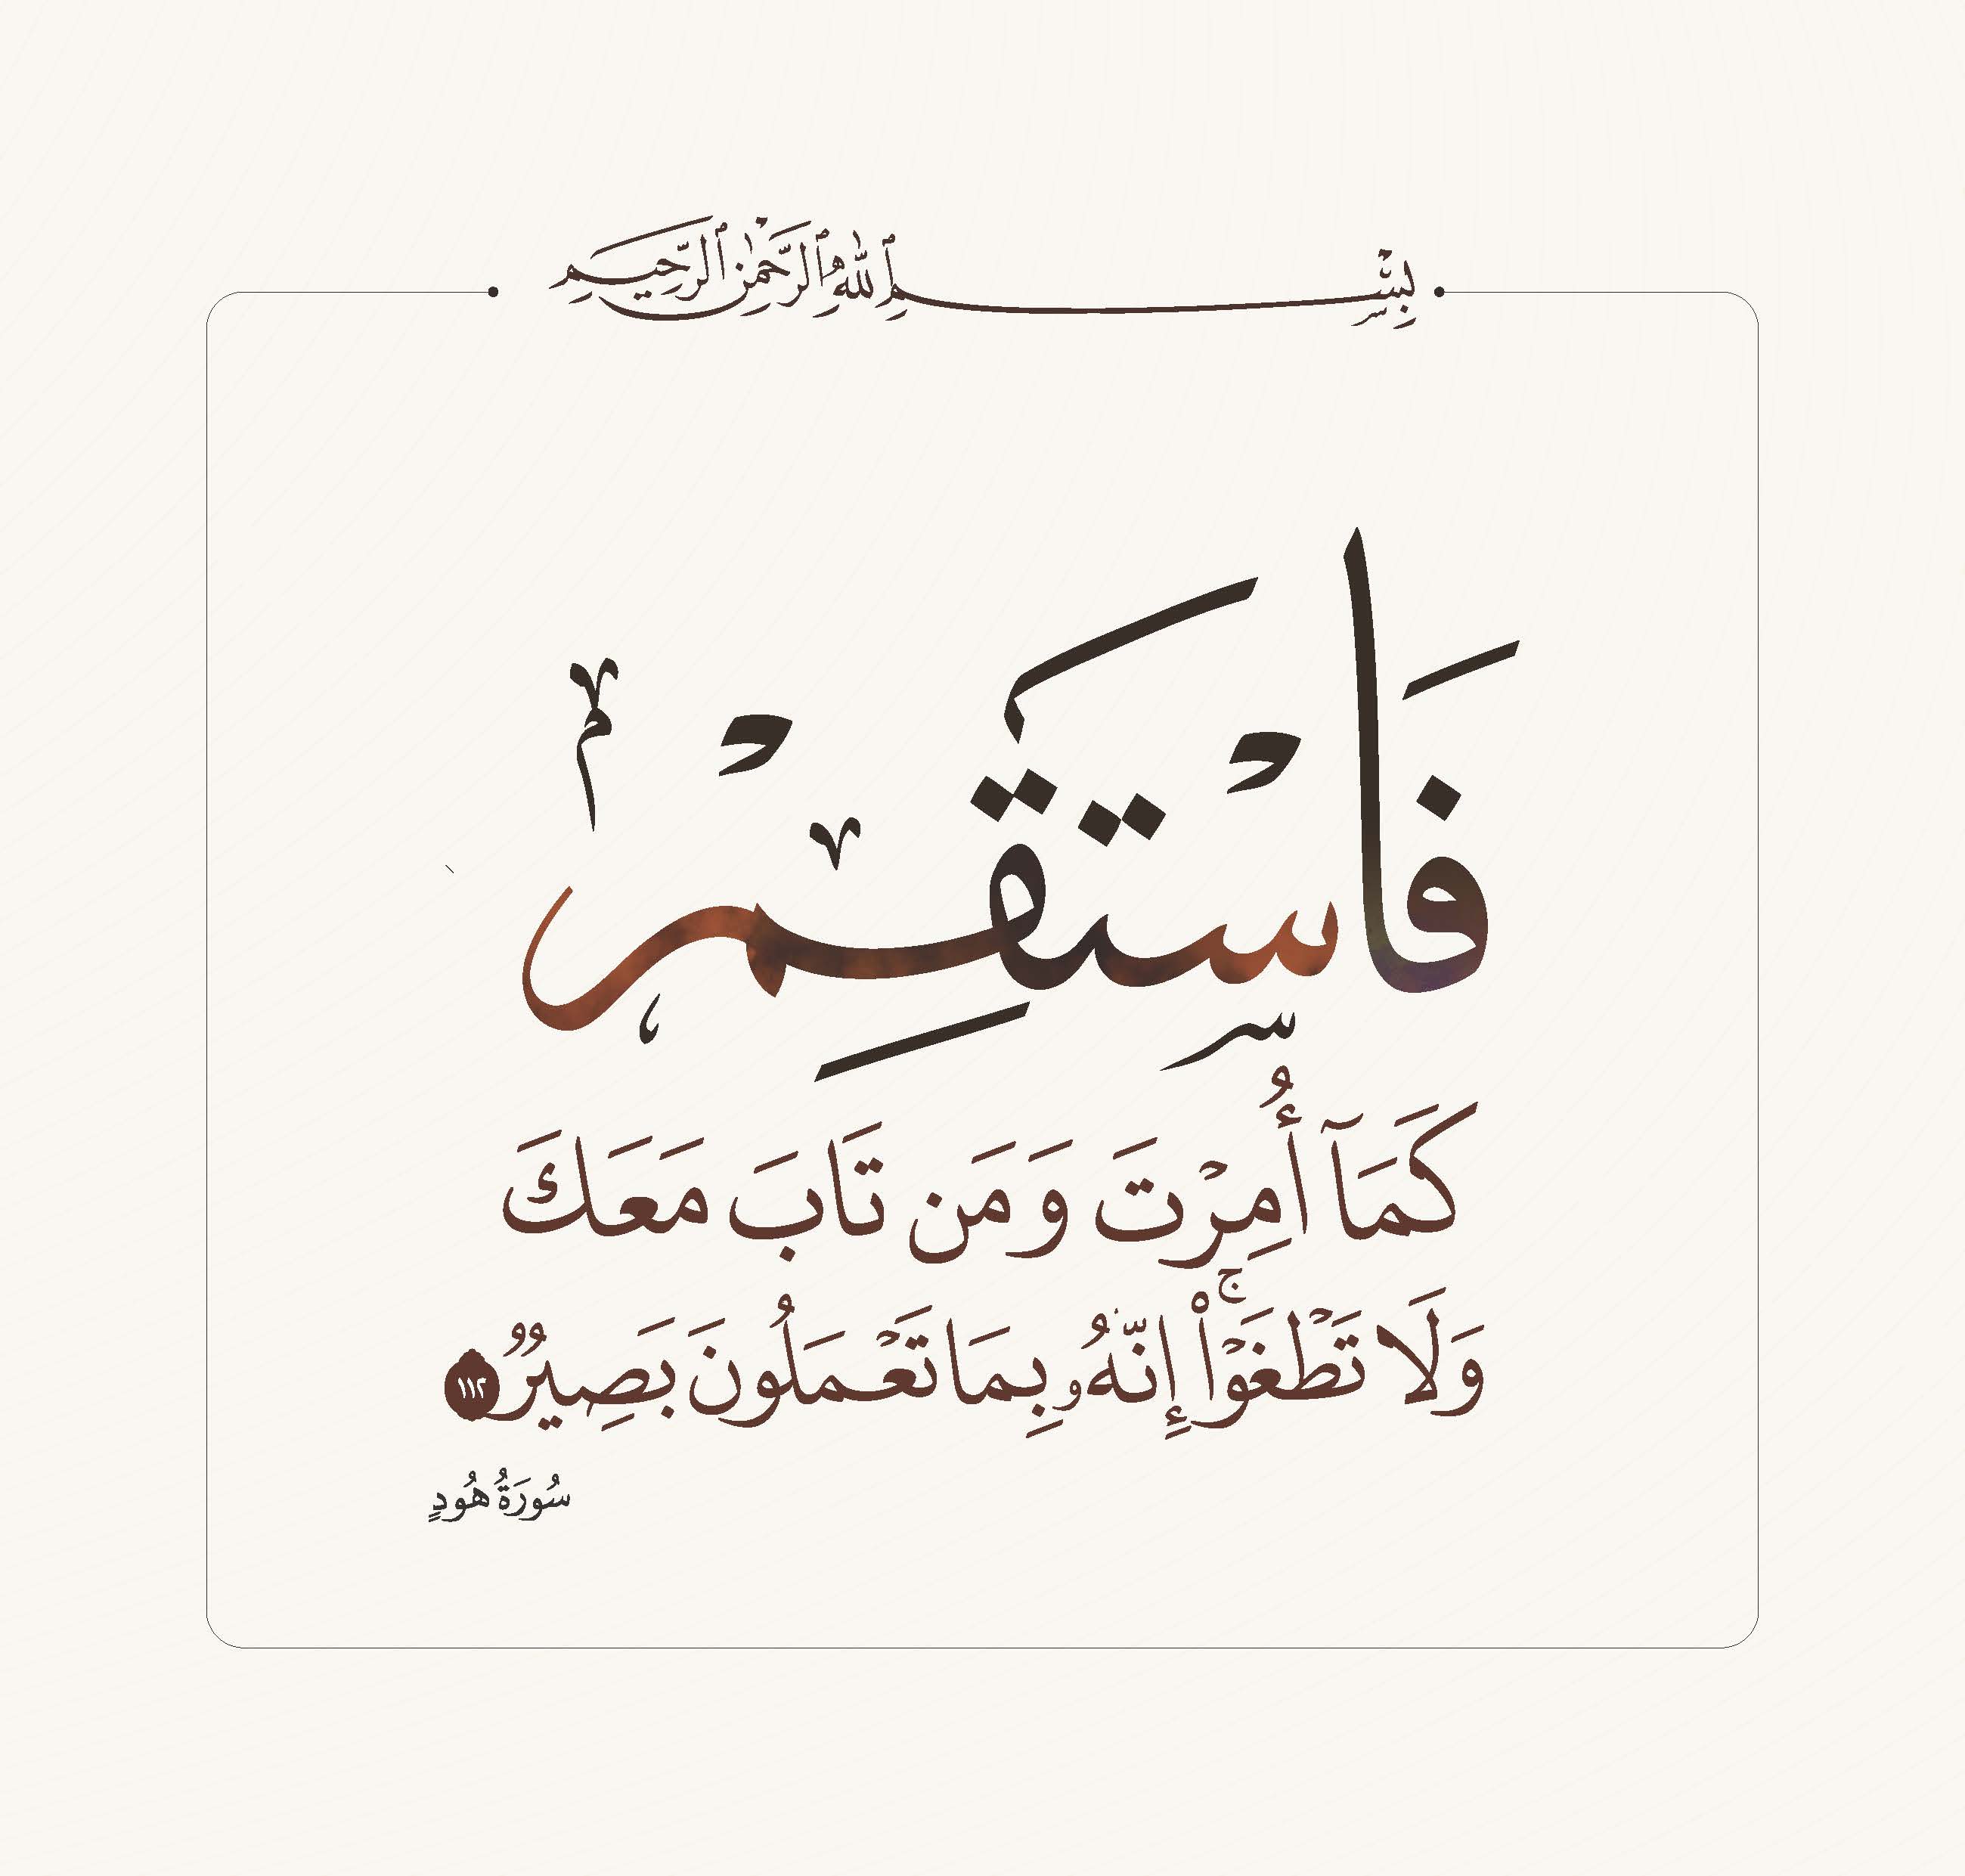 بِسْمِ ٱللَّهِ ٱلرَّحْمَٰنِ ٱلرَّحِيمِ
فَاسْتَقِمْ
كَمَآ أُمِرْتَ وَمَن تَابَ مَعَكَ
وَلَا تَطْغَوْا۟ ۚ إِنَّهُۥ بِمَا تَعْمَلُونَ بَصِيرٌ ١١٢
سُورَةُ هُودٍ